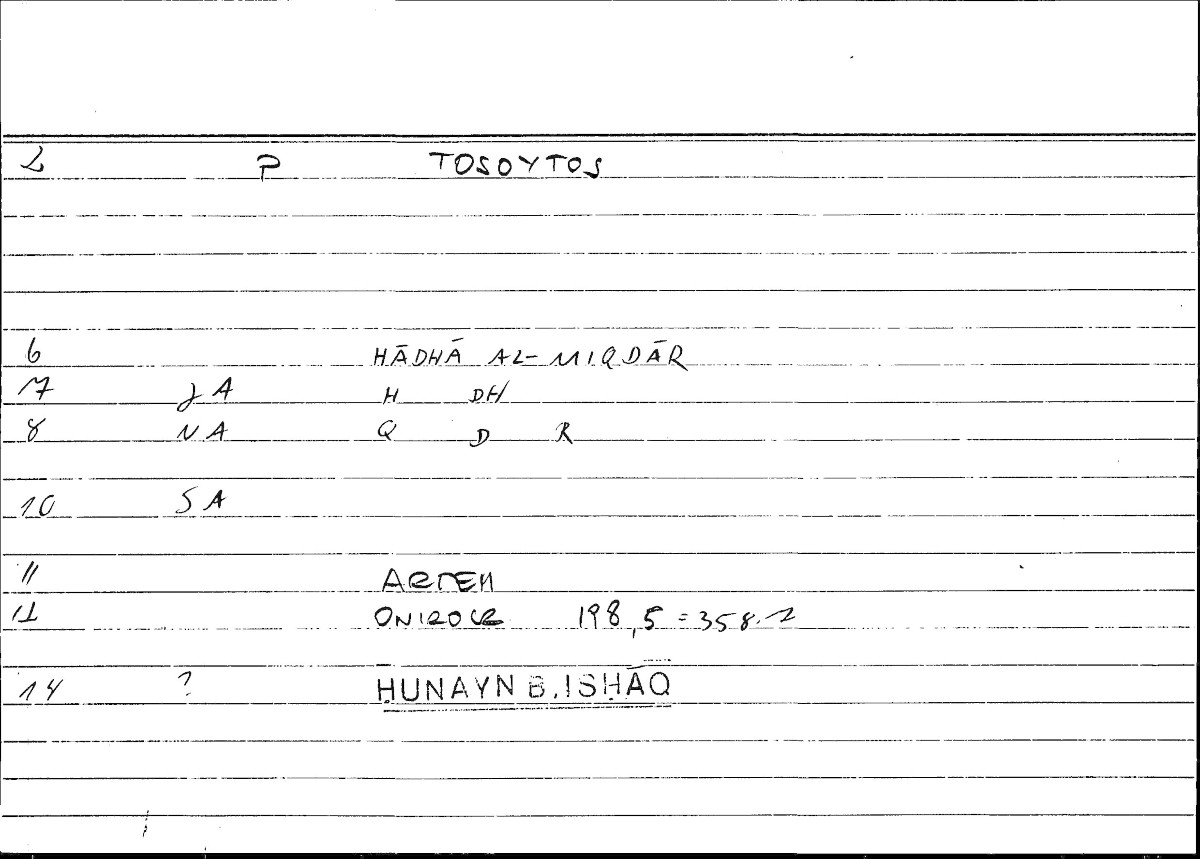 2 P TOSOYTOS
6 HĀDHĀ AL-MIQDĀR
7 JA H DH
8 NA Q D R
10 SA
11 ARTEM
12 ONIROCR 198,5 = 358.2
14 ? ḤUNAYN B. ISḤĀQ